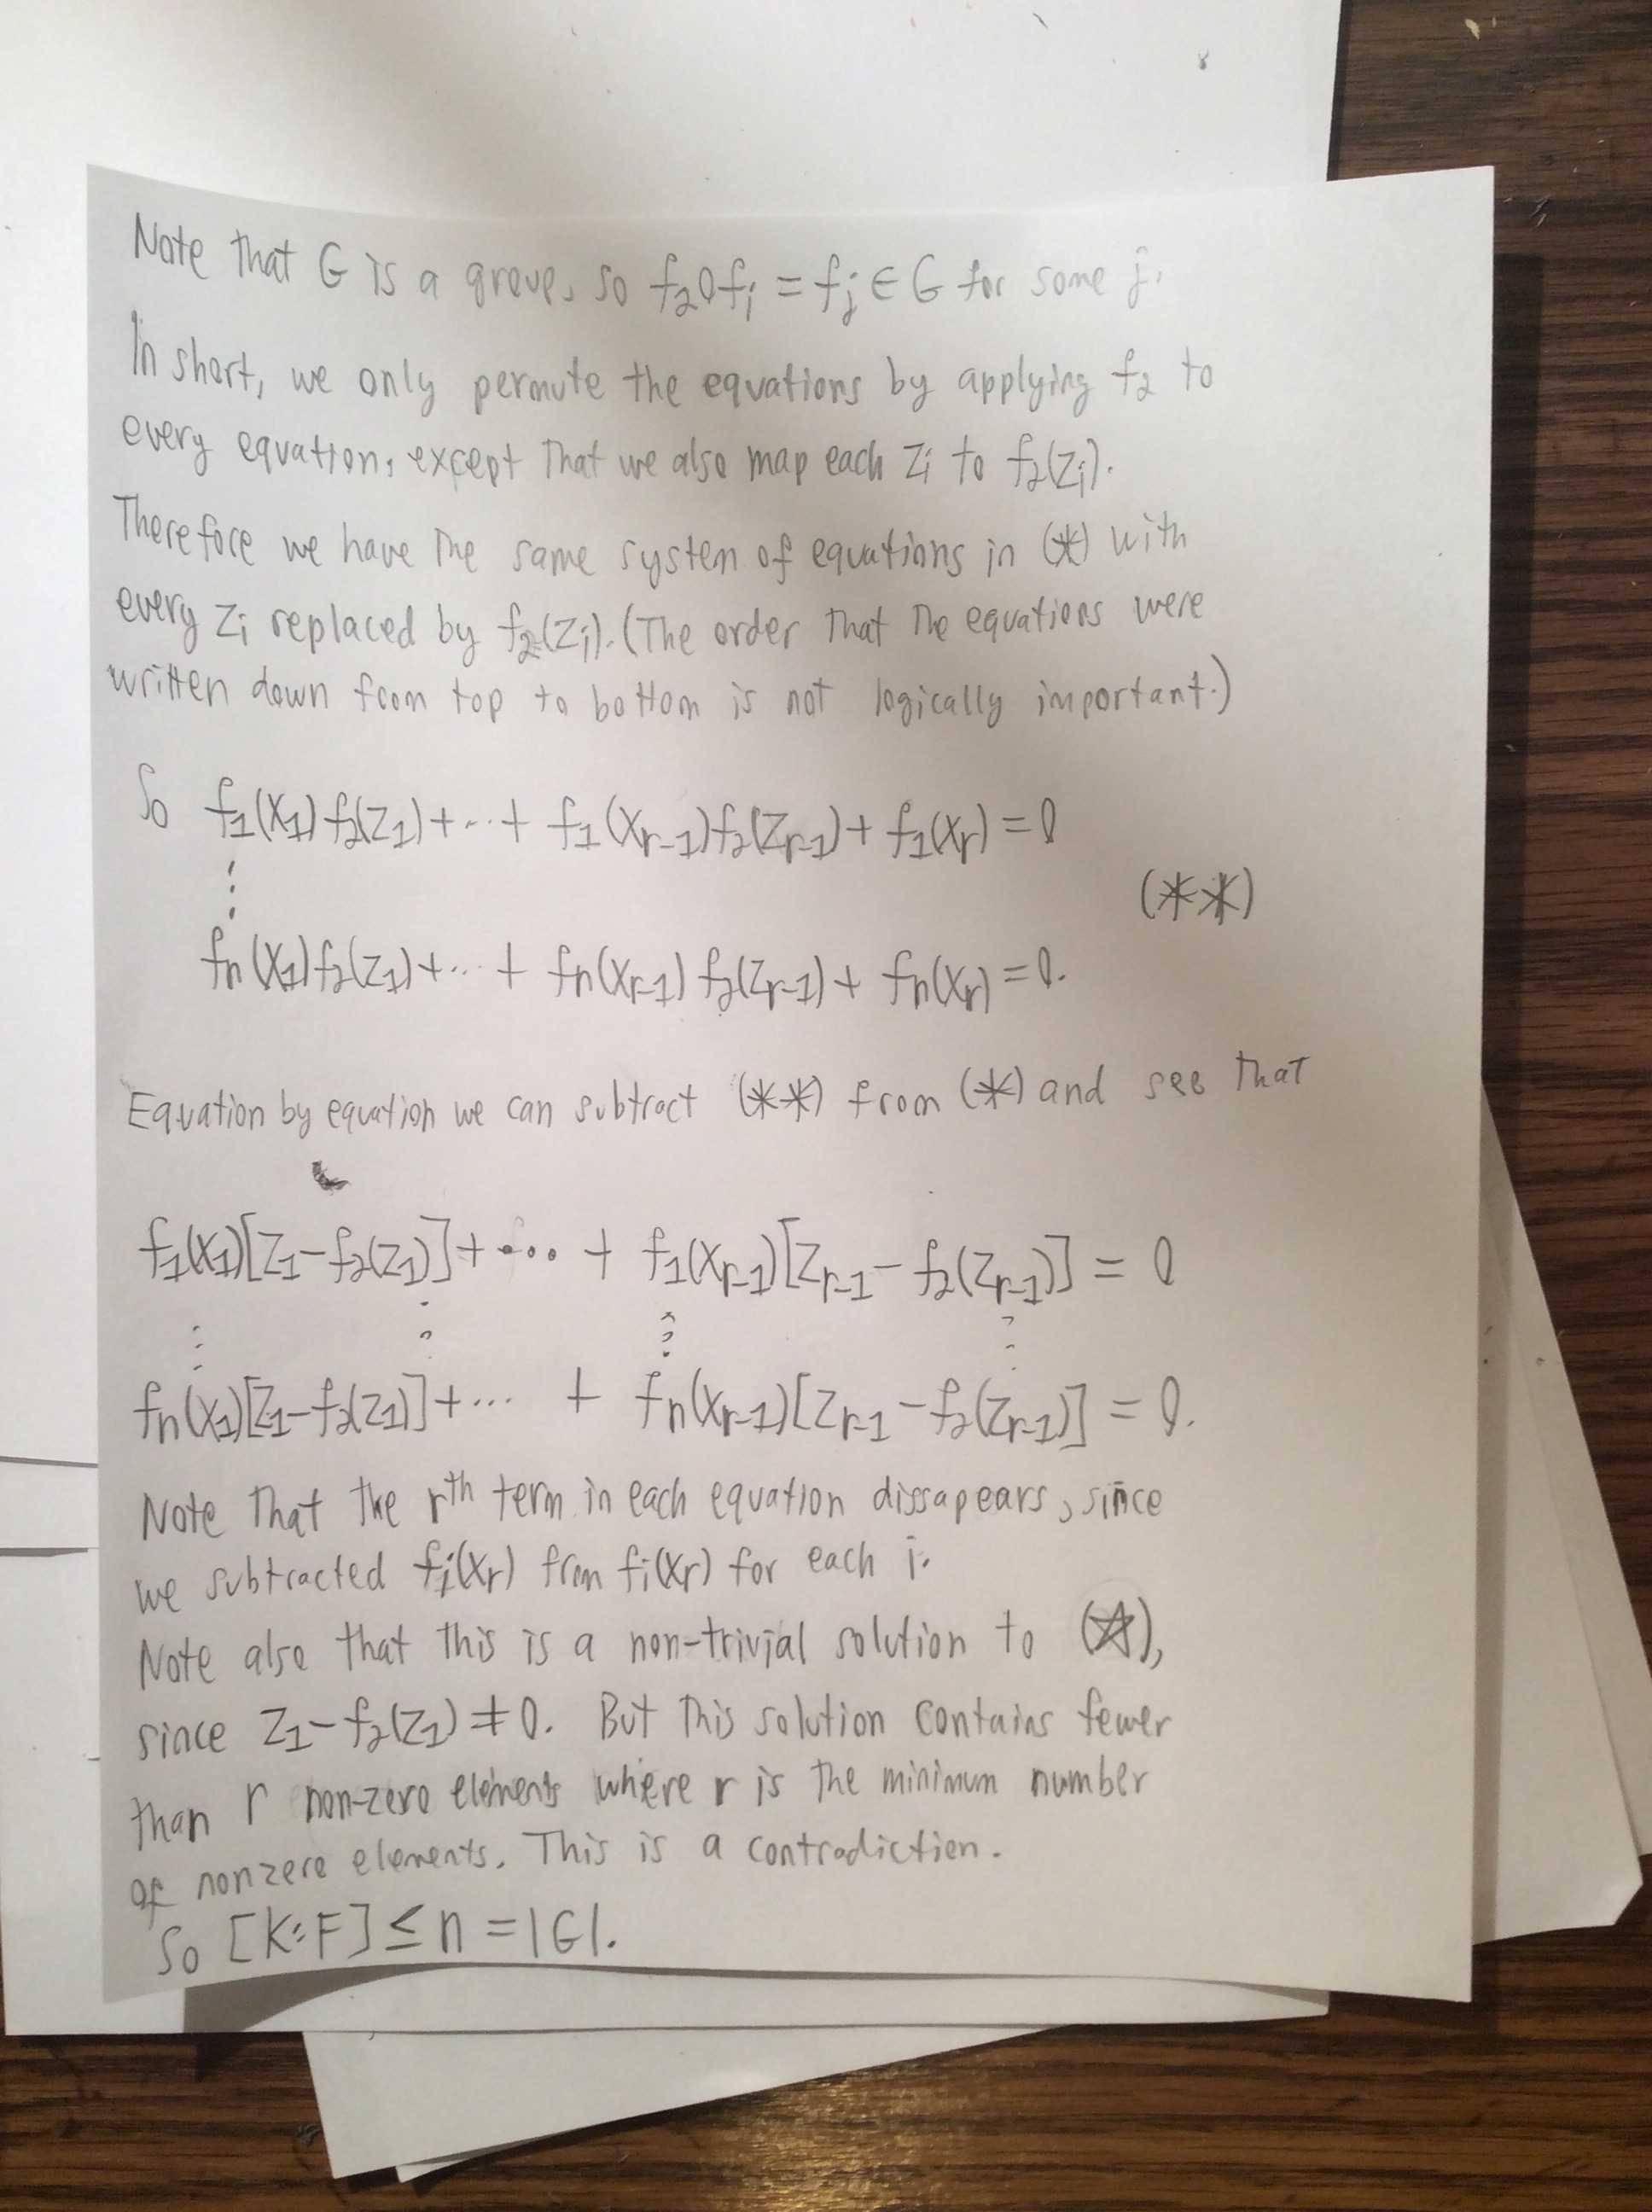 Note that G is a group, so f₂∘fᵢ = fⱼ ∈ G for some j.
In short, we only permute the equations by applying f₂ to
every equation, except that we also map each zᵢ to f₂(zᵢ).
Therefore we have the same system of equations in (*) with
every zᵢ replaced by f₂(zᵢ). (The order that the equations were
written down from top to bottom is not logically important.)
So f₁(x₁)f₂(z₁)+...+ f₁(xᵣ₋₁)f₂(zᵣ₋₁)+ f₁(xᵣ) = 0
⋮
(**)
fₙ(x₁)f₂(z₁)+...+ fₙ(xᵣ₋₁)f₂(zᵣ₋₁)+ fₙ(xᵣ) = 0.
Equation by equation we can subtract (**) from (*) and see that
f₁(x₁)[z₁-f₂(z₁)]+...+ f₁(xᵣ₋₁)[zᵣ₋₁-f₂(zᵣ₋₁)] = 0
⋮ ⋮ ⋮ ⋮
fₙ(x₁)[z₁-f₂(z₁)]+... + fₙ(xᵣ₋₁)[zᵣ₋₁-f₂(zᵣ₋₁)] = 0.
Note that the rᵗʰ term in each equation dissapears, since
we subtracted fᵢ(xᵣ) from fᵢ(xᵣ) for each i.
Note also that this is a non-trivial solution to (☆),
since z₁-f₂(z₁) ≠ 0. But this solution contains fewer
than r non-zero elements where r is the minimum number
of nonzero elements. This is a contradiction.
So [K:F] ≤ n = |G|.